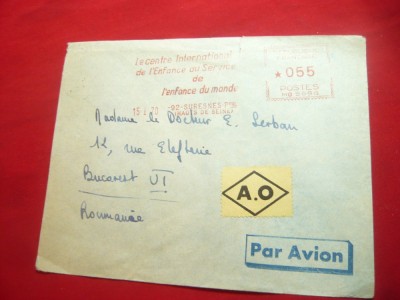 Le centre International
de l'Enfance au Service
de
l'enfance du monde
★ 055
POSTES
15 -92-SURESNES PPAL
(HAUTS DE SEINE)
Madame le Docteur E. Serban
12, rue Elefterie
Bucarest VI
Roumanie
A.O
Par Avion